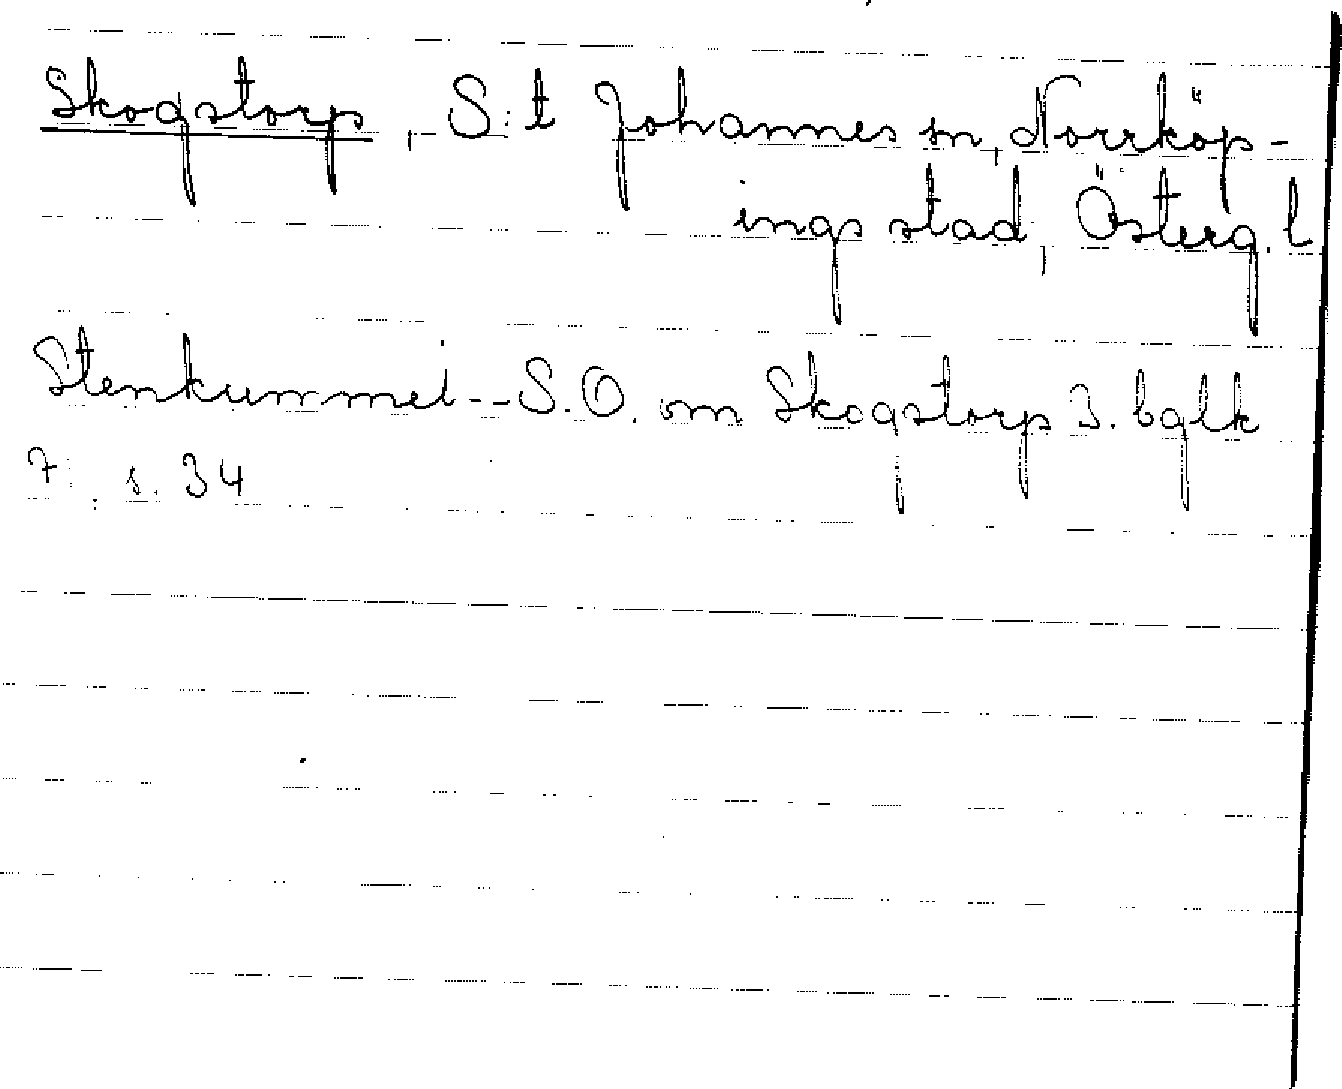 Skogstorp, S:t Johannes sn, Norrköp-
ings stad, Österg. l
Stenkummel -- S.O. om Skogstorp 3. bglk
7: s. 34